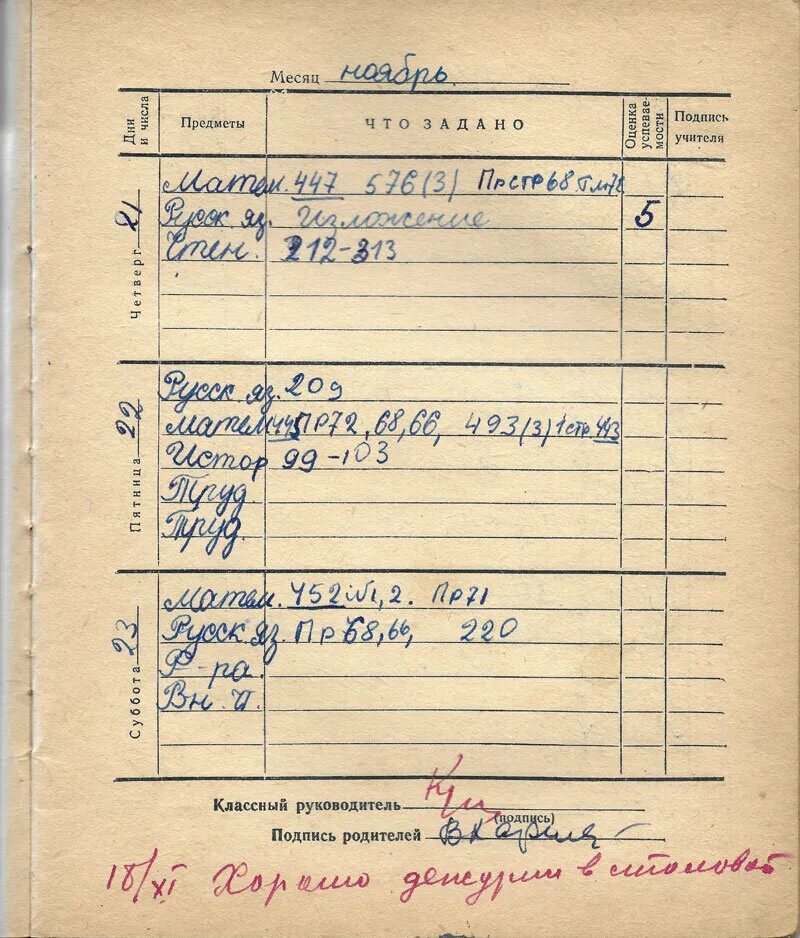 Месяц ноябрь.
Дни и числа Предметы ЧТО ЗАДАНО Оценка успевае- мости Подпись учителя
Четверг 21
Матем. 447 576(3) Пр стр 68
Русск яз. Изложение 5
Чтен. 212-313
Пятница 22
Русск яз. 209
Матем 445 ПР72, 68, 66, 493(3) 1 стр. 443
Истор 99-103
Труд.
Труд.
Суббота 23
Матем. 452 №1, 2. Пр71
Русск яз. Пр 68, 66, 220
Ф-ра.
Вн. чт.
Классный руководитель
(подпись)
Подпись родителей
18/XI Хорошо дежурил в столовой